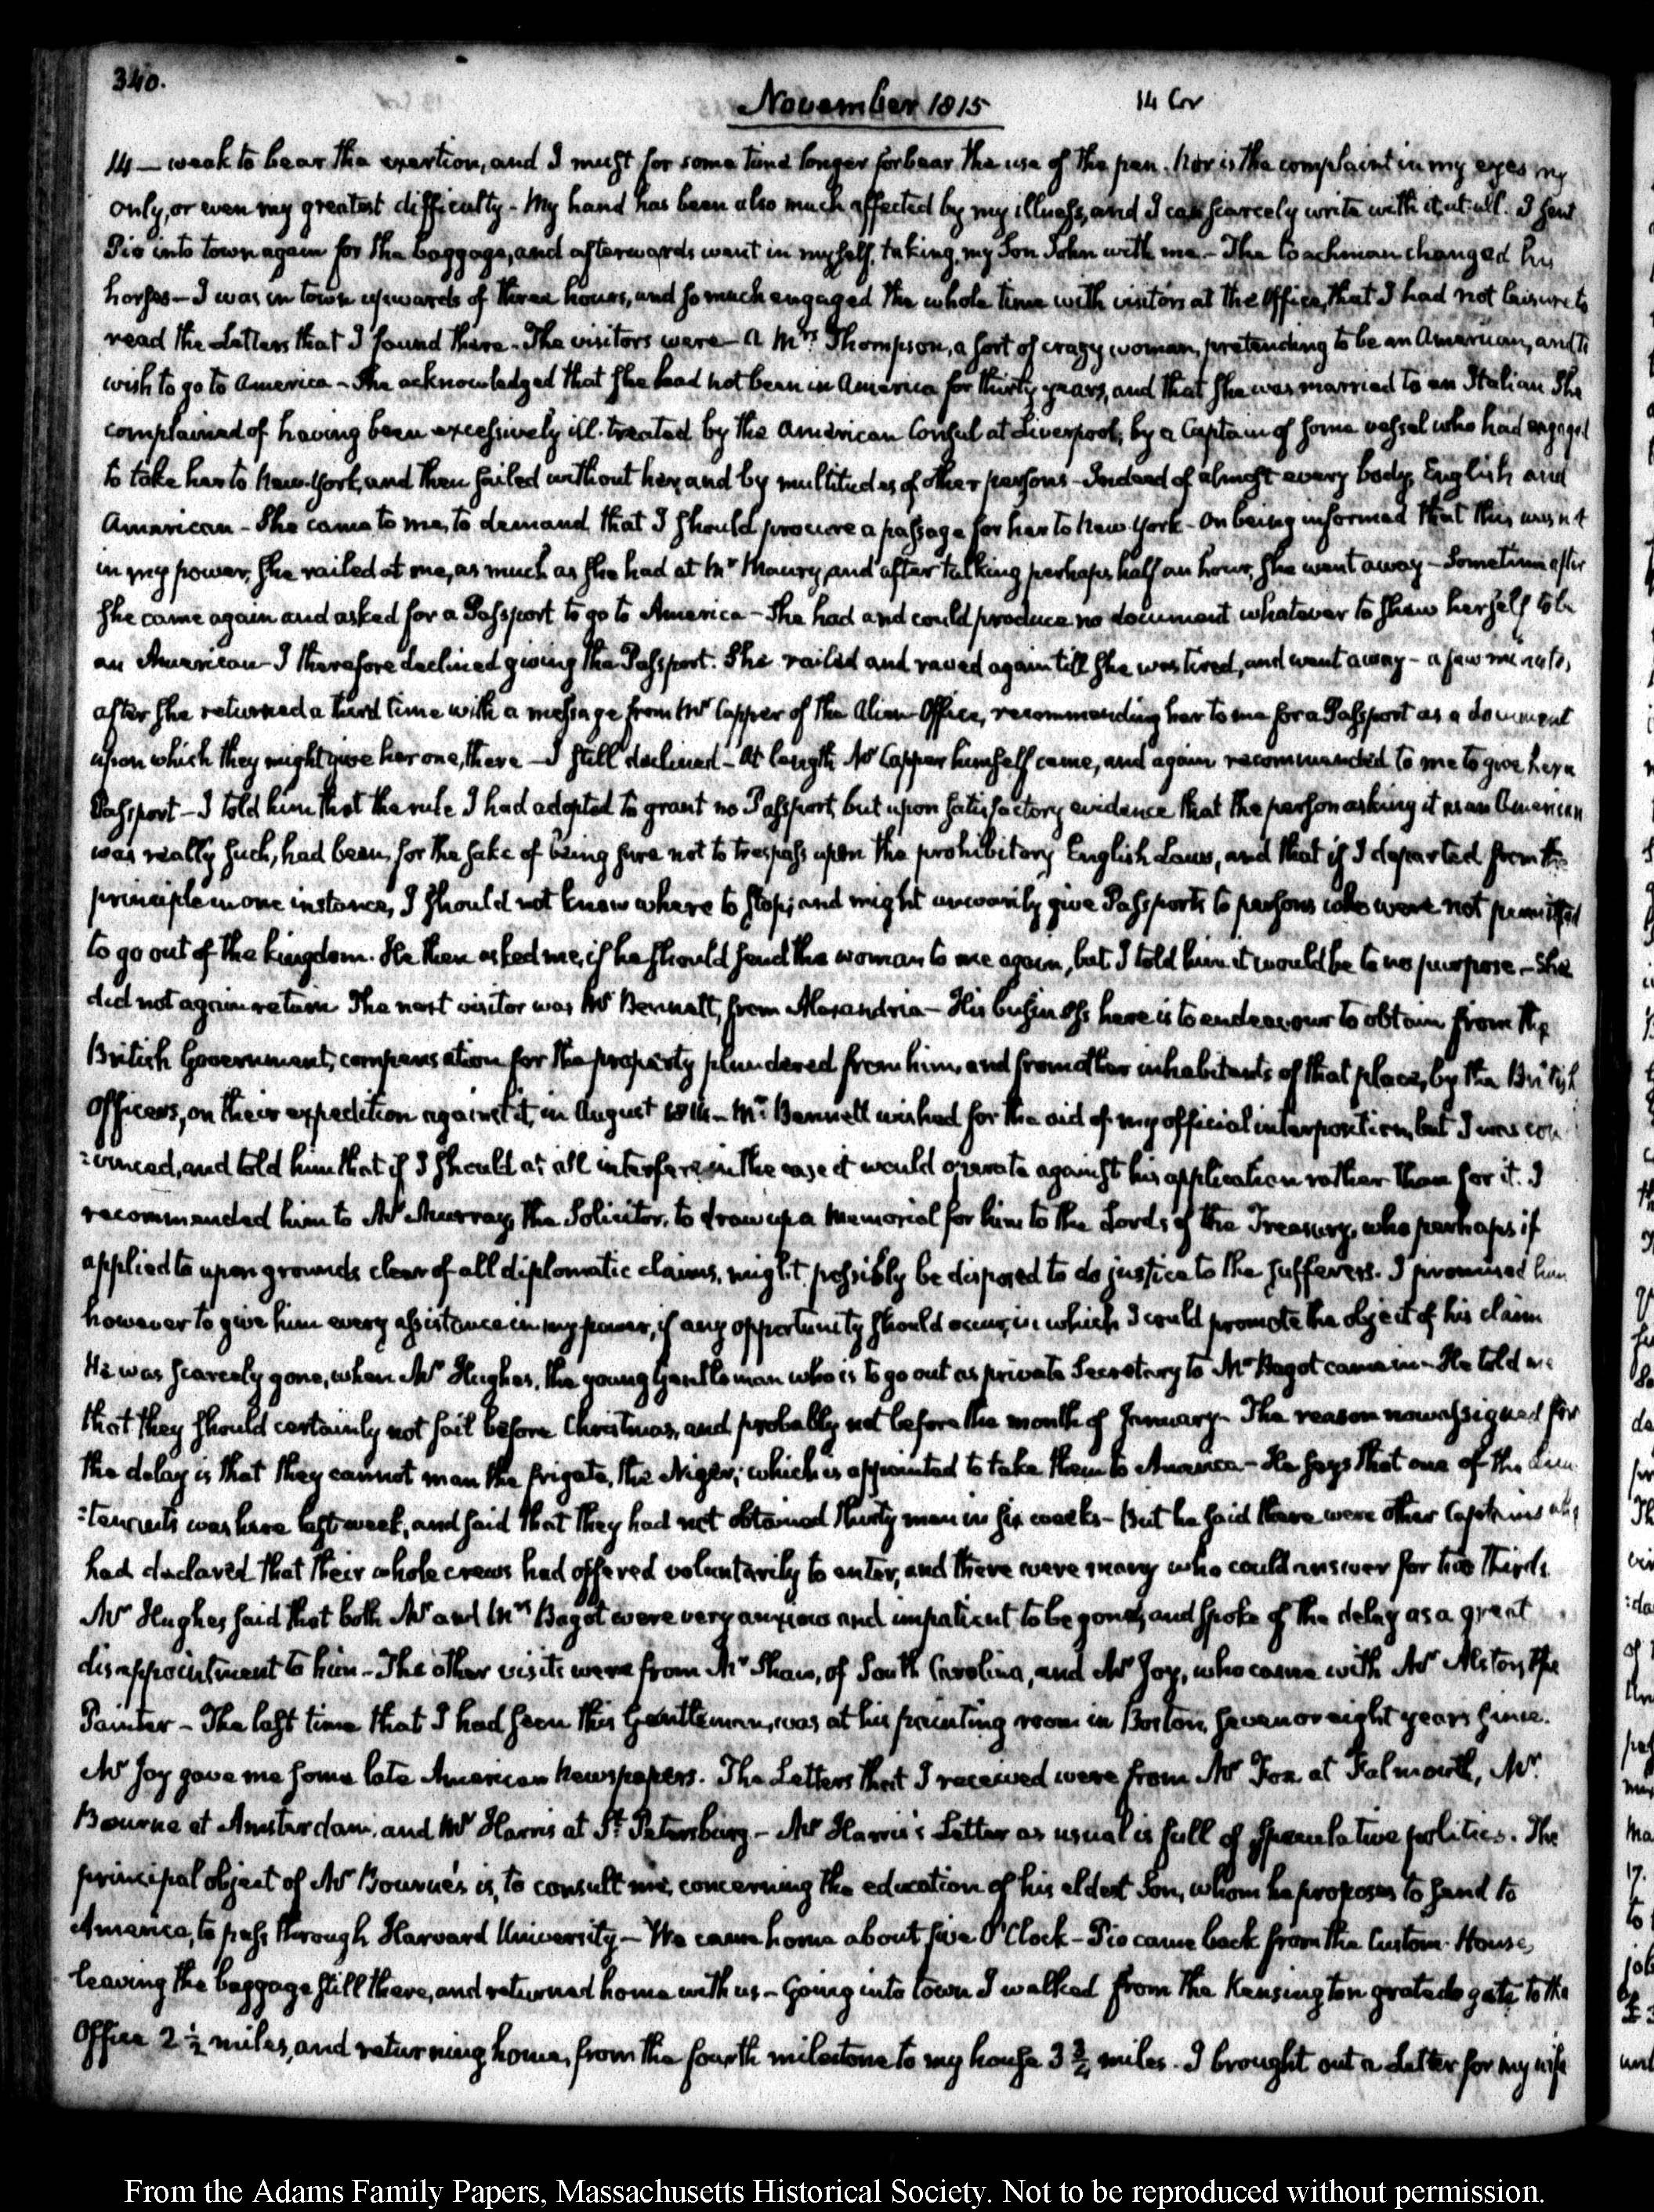 340.
November 1815
14 Cor
14 — weak to bear the exertion, and I must for some time longer forbear the use of the pen. Nor is the complaint in my eyes my
only, or even my greatest difficulty - My hand has been also much affected by my illness, and I can scarcely write with it, at all. I sent
Pio into town again for the baggage, and afterwards went in myself, taking, my Son John with me. - The Coachman changed his
horses - I was in town upwards of three hours, and so much engaged the whole time with visitors at the Office, that I had not leisure to
read the Letters that I found there. The visitors were - a Mrs. Thompson, a sort of crazy woman, pretending to be an American, and to
wish to go to America - She acknowledged that she had not been in America for thirty years, and that she was married to an Italian She
complained of having been excessively ill-treated by the American Consul at Liverpool, by a Captain of some vessel who had engaged
to take her to New-York, and then sailed without her, and by multitudes of other persons - Indeed of almost every body, English and
American - She came to me, to demand, that I should procure a passage for her to New-York - On being informed that this was not
in my power, she railed at me, as much as she had at Mr Maury, and after talking perhaps half an hour, she went away - Sometime after
she came again and asked for a Passport to go to America - She had and could produce no document whatever to shew herself to be
an American - I therefore declined giving the Passport. She railed and raved again till she was tired, and went away - a few minutes
after she returned a third time with a message from Mr Capper of the Alien-Office, recommending her to me for a Passport as a document
upon which they might give her one, there — I still declined - At length Mr Capper himself came, and again recommended to me to give her a
Passport - I told him that the rule I had adopted to grant no Passport, but upon satisfactory evidence that the person asking it as an American
was really such, had been, for the sake of being sure not to trespass upon the prohibitory English Laws, and that if I departed from the
principle in one instance, I should not know where to stop; and might unwarily give Passports to persons who were not permitted
to go out of the kingdom. He then asked me, if he should send the woman to me again, but I told him it would be to no purpose. - She
did not again return The next visitor was Mr Bennett, from Alexandria - His business here is to endeavour to obtain from the
British Government, compensation for the property plundered from him, and from other inhabitants of that place, by the British
Officers, on their expedition against it, in August 1814 - Mr. Bennett wished for the aid of my official interposition, but I was con
:vinced, and told him that if I should at all interfere in the case it would operate against his application rather than for it. I
recommended him to Mr Murray, the Solicitor, to draw up a Memorial for him to the Lords of the Treasury, who perhaps if
applied to upon grounds clear of all diplomatic claims, might possibly be disposed to do justice to the sufferers. I promised him
however to give him every assistance in my power, if any opportunity should occur, in which I could promote the object of his claim
He was scarcely gone, when Mr Hughes, the young Gentleman who is to go out as private Secretary to Mr Bagot came in - He told me
that they should certainly not sail before Christmas, and probably not before the month of January - The reason now assigned for
the delay is that they cannot man the frigate, the Niger, which is appointed to take them to America - He says that one of the Lieu
:tenants was here last week, and said that they had not obtained thirty men in six weeks - But he said there were other Captains who
had declared that their whole crews had offered voluntarily to enter, and there were many who could answer for two thirds.
Mr Hughes said that both Mr and Mrs Bagot were very anxious and impatient to be gone, and spoke of the delay as a great
disappointment to him - The other visits were from Mr Shaw, of South Carolina, and Mr Joy, who came with Mr Alston, the
Painter - The last time that I had seen this Gentleman, was at his painting room in Boston, seven or eight years since.
Mr Joy gave me some late American Newspapers. The Letters that I received were from Mr Fox at Falmouth, Mr.
Bourne at Amsterdam, and Mr Harris at St. Petersburg. - Mr Harris's Letter as usual is full of speculative politics. The
principal object of Mr Bourne's is, to consult me, concerning the education of his eldest Son, whom he proposes to send to
America, to pass through Harvard University - We came home about five O'Clock - Pio came back from the Custom-House,
leaving the baggage still there, and returned home with us - Going into town I walked from the Kensington gate to the
Office 2 ½ miles, and returning home, from the fourth milestone to my house 3 ¾ miles. I brought out a Letter for my wife
From the Adams Family Papers, Massachusetts Historical Society. Not to be reproduced without permission.